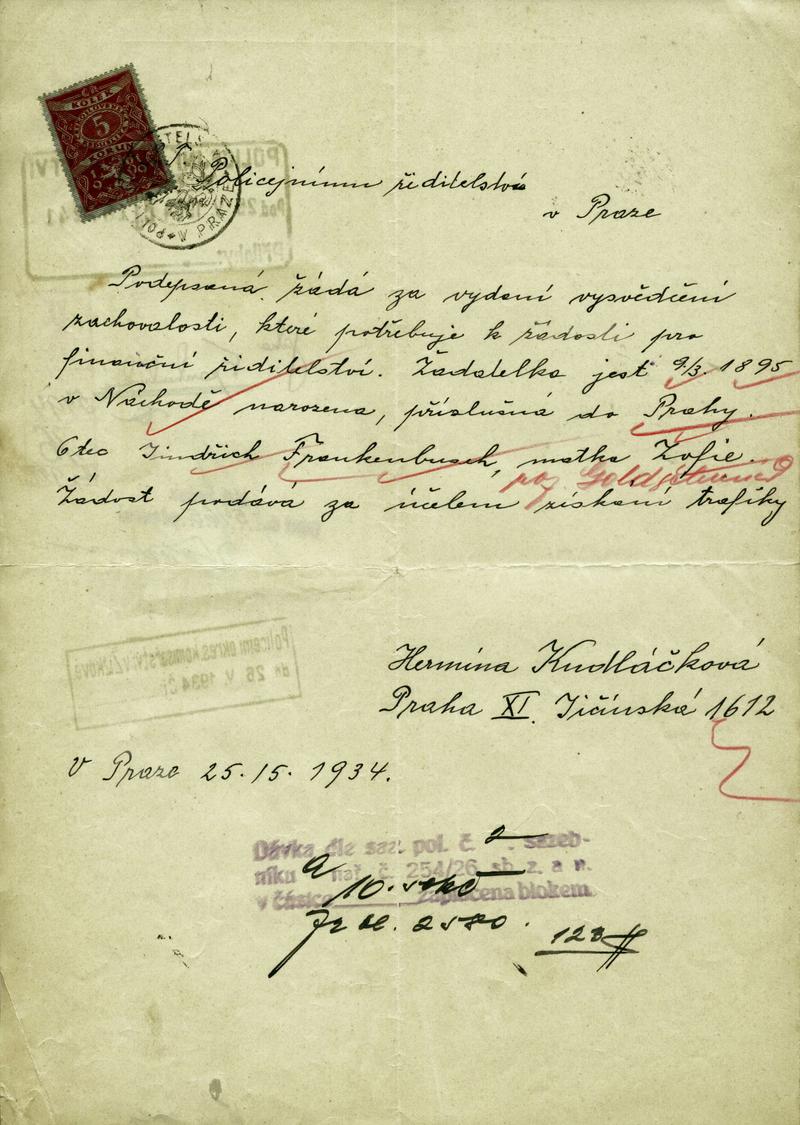 KOLEK
5
KORUN
V PRAZE
Policejnímu ředitelství
v Praze
Podepsaná žádá za vydání vysvědčení
zachovalosti, které potřebuje k žádosti pro
finanční ředitelství. Žadatelka jest 9/3. 1895
v Náchodě narozena, příslušná do Prahy.
Otec Jindřich Frankenbusch, matka Žofie.
roz.
Žádost podává za účelem získání trafiky
Policejní okres. komisařství Žižkově
26. V. 1934
Hermína Kudláčková
Praha XI. Jičínská 1612
V Praze 25. 15. 1934.
Dávka dle saz. pol. č. 2 sazeb-
níku nař. č. 254/26 sb. z. a n.
v částce 10. Kč zaplacena blokem
2580.
123